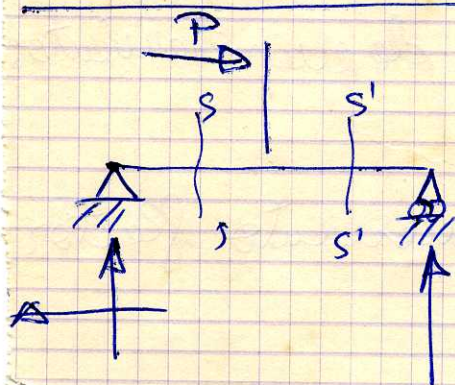 P
S S'
S S'